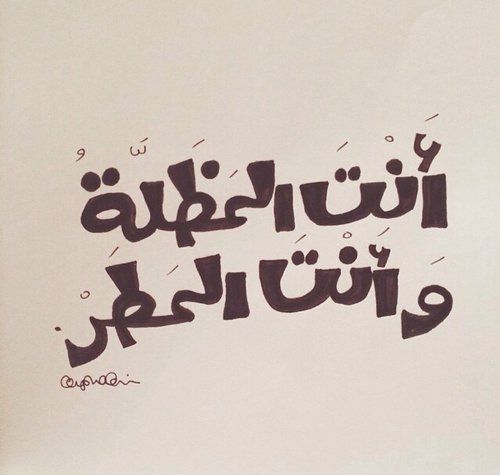 أَنْتَ المَظَلَّةُ
وَأَنْتَ المَطَرْ